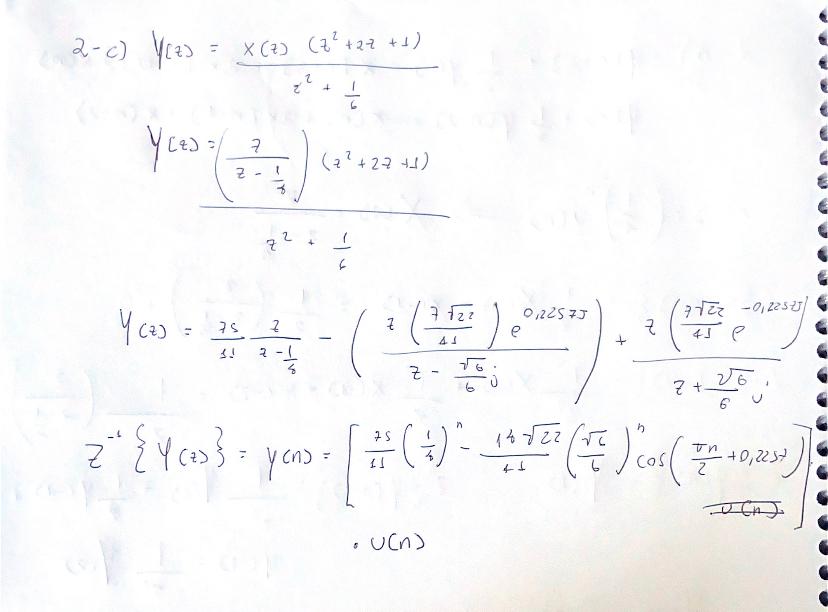 2-c) Y(z) = X(z) (z² + 2z + 1) / (z² + 1/6)
Y(z) = (z / (z - 1/4)) (z² + 2z + 1) / (z² + 1/6)
Y(z) = 75/11 z/(z - 1/4) - (z (7√22/11) e^0,2257J / (z - √6/6 j)) + z (7√22/11 e^-0,2257J) / (z + √6/6 j)
Z⁻¹ { Y(z) } = y(n) = [ 75/11 (1/4)ⁿ - 14√22/11 (√6/6)ⁿ cos( πn/2 + 0,2257 )
u(n) ]
. u(n)